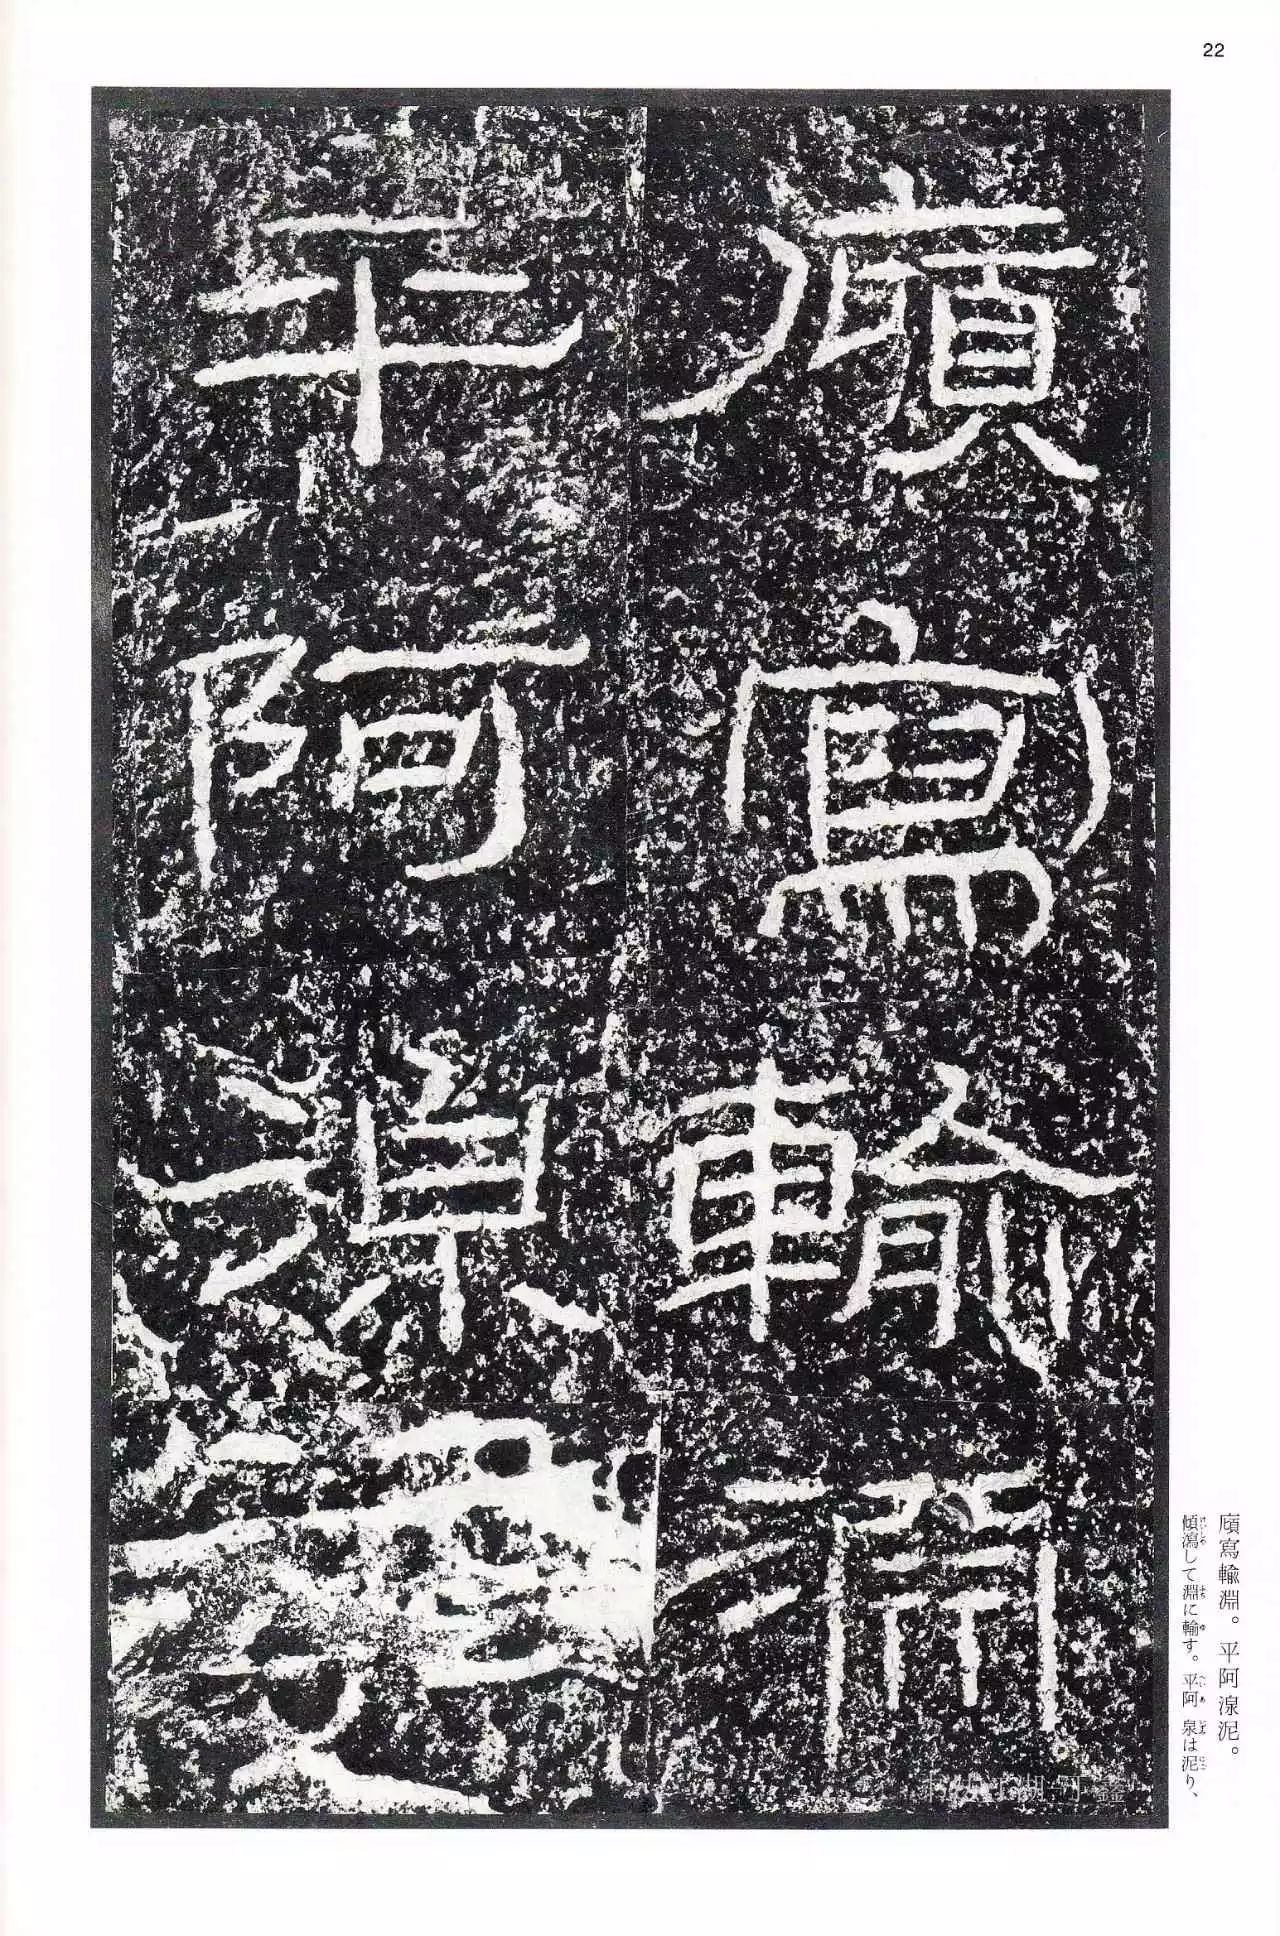 22
廎寫輸淵
平阿湶泥
廎寫輸淵。平阿湶泥。
傾瀉して淵に輸す。平阿泉は泥り、